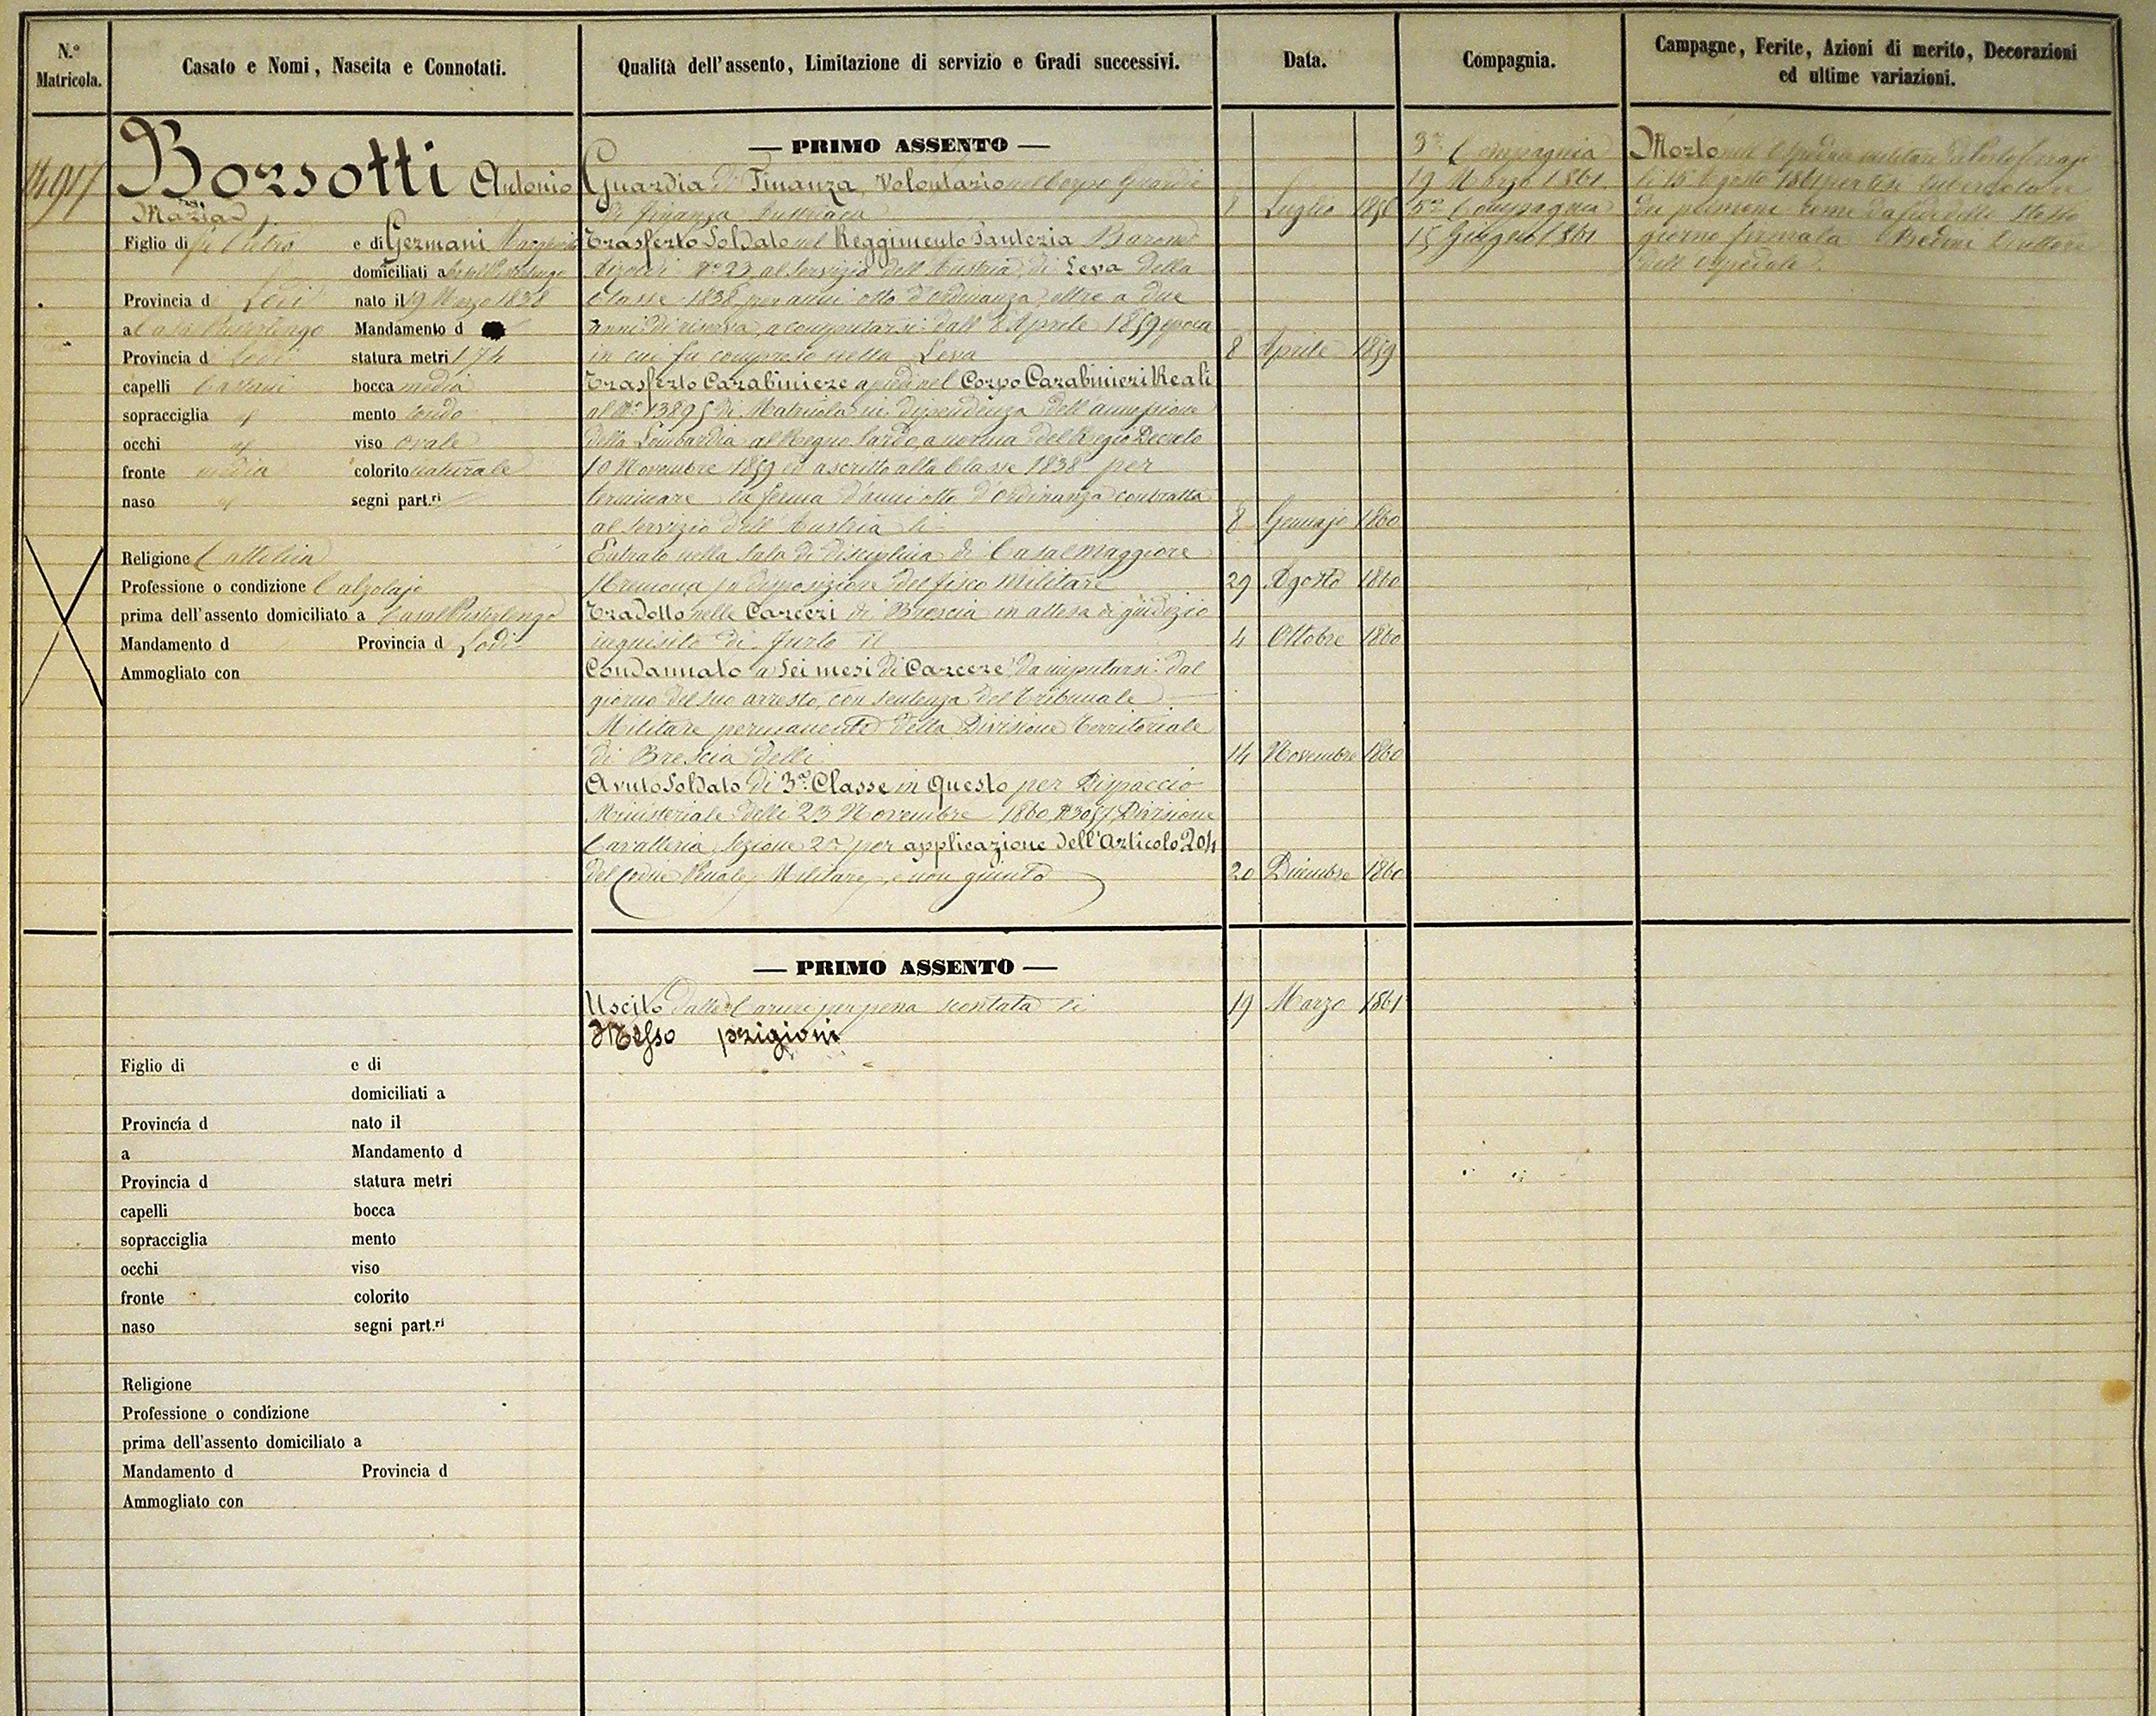 N.º Matricola.
Casato e Nomi, Nascita e Connotati.
Qualità dell'assento, Limitazione di servizio e Gradi successivi.
Data.
Compagnia.
Campagne, Ferite, Azioni di merito, Decorazioni
ed ultime variazioni.
Borsotti Antonio
Maria
Figlio di fu Pietro e di Germani
domiciliati a
Provincia di Lodi nato il 19 Marzo 1838
a Casal Pusterlengo Mandamento d
Provincia di Lodi statura metri 1,74
capelli Castani bocca media
sopracciglia mento tondo
occhi viso ovale
fronte media colorito naturale
naso segni part.ri
Religione Cattolica
Professione o condizione Calzolajo
prima dell'assento domiciliato a Casal Pusterlengo
Mandamento d Provincia d Lodi
Ammogliato con
— PRIMO ASSENTO —
Guardia di Finanza, Volontario nel Corpo Guardie
di Finanza Austriaca Luglio
Trasferto Soldato nel Reggimento Fanteria Barone
Nº 23, al servizio dell'Austria di Leva della
Classe 1838, per anni otto d'ordinanza, oltre a due
anni di riserva, a computarsi dall'8 Aprile 1859 epoca
in cui fu compreso nella Leva 8 Aprile 1859
Trasferto Carabiniere a piedi nel Corpo Carabinieri Reali
al Nº 13895 di Matricola in dipendenza dell'annessione
della Lombardia al Regno Sardo, a norma del Regio Decreto
10 Novembre 1859 ed ascritto alla Classe 1838 per
terminare la ferma d'anni otto d'ordinanza contratta
al servizio dell'Austria li 8 Gennajo 1860
Entrato nella Sala di disciplina di Casalmaggiore
Cremona a disposizione del fisco Militare 29 Agosto 1860
Tradotto nelle Carceri di Brescia in attesa di giudizio
inquisito di furto il 4 Ottobre 1860
Condannato a Sei mesi di Carcere da imputarsi dal
giorno del suo arresto, con sentenza del Tribunale
Militare permanente della Divisione Territoriale
di Brescia delli 14 Novembre 1860
Avuto Soldato di 3ª Classe in Questo per Dispaccio
Ministeriale delli 23 Novembre 1860, Divisione
Cavalleria, Sezione 2ª, per applicazione dell'Articolo 204
del Codice Penale Militare, e non giunto 20 Dicembre 1860
3ª Compagnia
19 Marzo 1861
5ª Compagnia
15 Giugno 1861
Morto nell'Ospedale militare di Portoferrajo
li 15 Agosto 1861 per tisi tubercolare
dei polmoni come da fede dello stesso
giorno firmata Bedini Direttore
dell'Ospedale.
— PRIMO ASSENTO —
Uscito dalle Carceri per pena scontata li 19 Marzo 1861
Messo prigioni
Figlio di e di
domiciliati a
Provincia d nato il
a Mandamento d
Provincia d statura metri
capelli bocca
sopracciglia mento
occhi viso
fronte colorito
naso segni part.ri
Religione
Professione o condizione
prima dell'assento domiciliato a
Mandamento d Provincia d
Ammogliato con